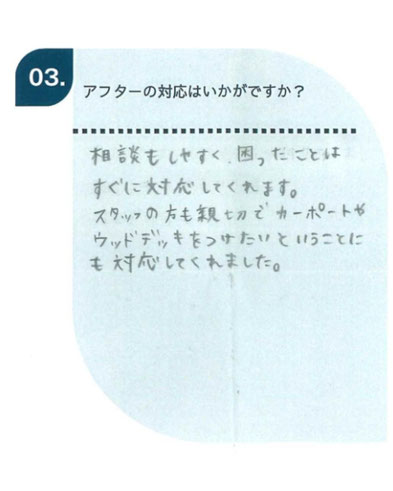 03.
アフターの対応はいかがですか？
相談もしやすく、困ったことは
すぐに対応してくれます。
スタッフの方も親切でカーポートや
ウッドデッキをつけたいということに
も対応してくれました。